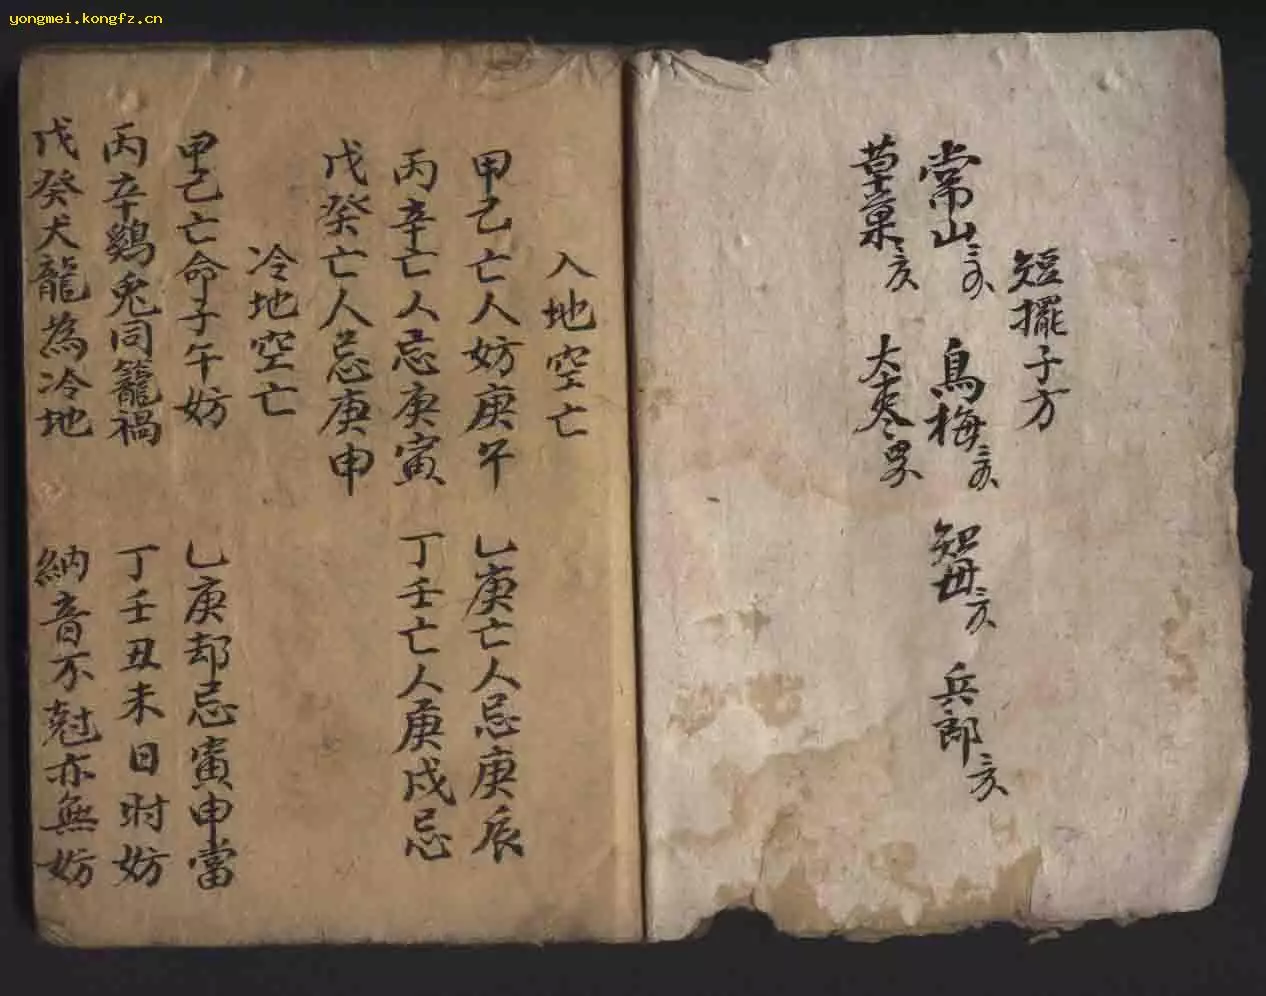 yongmei.kongfz.cn
短擺子方
常山 烏梅 知母 兵郎
草菓 大枣
入地空亡
甲己亡人妨庚午 乙庚亡人忌庚辰
丙辛亡人忌庚寅 丁壬亡人庚戌忌
戊癸亡人忌庚申
冷地空亡
甲己亡命子午妨 乙庚却忌寅申當
丙辛鷄兎同籠禍 丁壬丑未日时妨
戊癸犬龍為冷地 納音不尅亦無妨